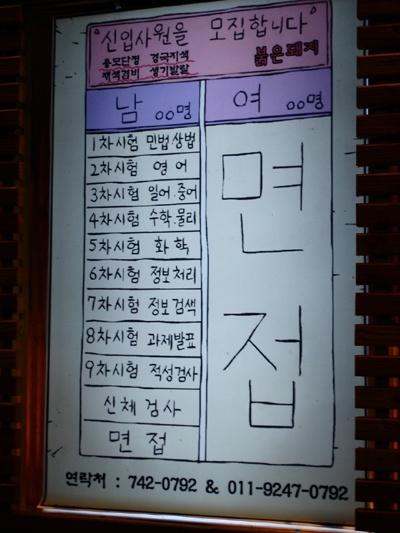 "신입사원을 모집합니다"
용모단정 경국지색
재색겸비 생기발랄
붉은돼지
남 00명
여 00명
1차시험 민법·상법
2차시험 영어
3차시험 일어·중어
4차시험 수학·물리
5차시험 화학
6차시험 정보처리
7차시험 정보검색
8차시험 과제발표
9차시험 적성검사
신체검사
면접
면접
연락처 : 742-0792 & 011-9247-0792